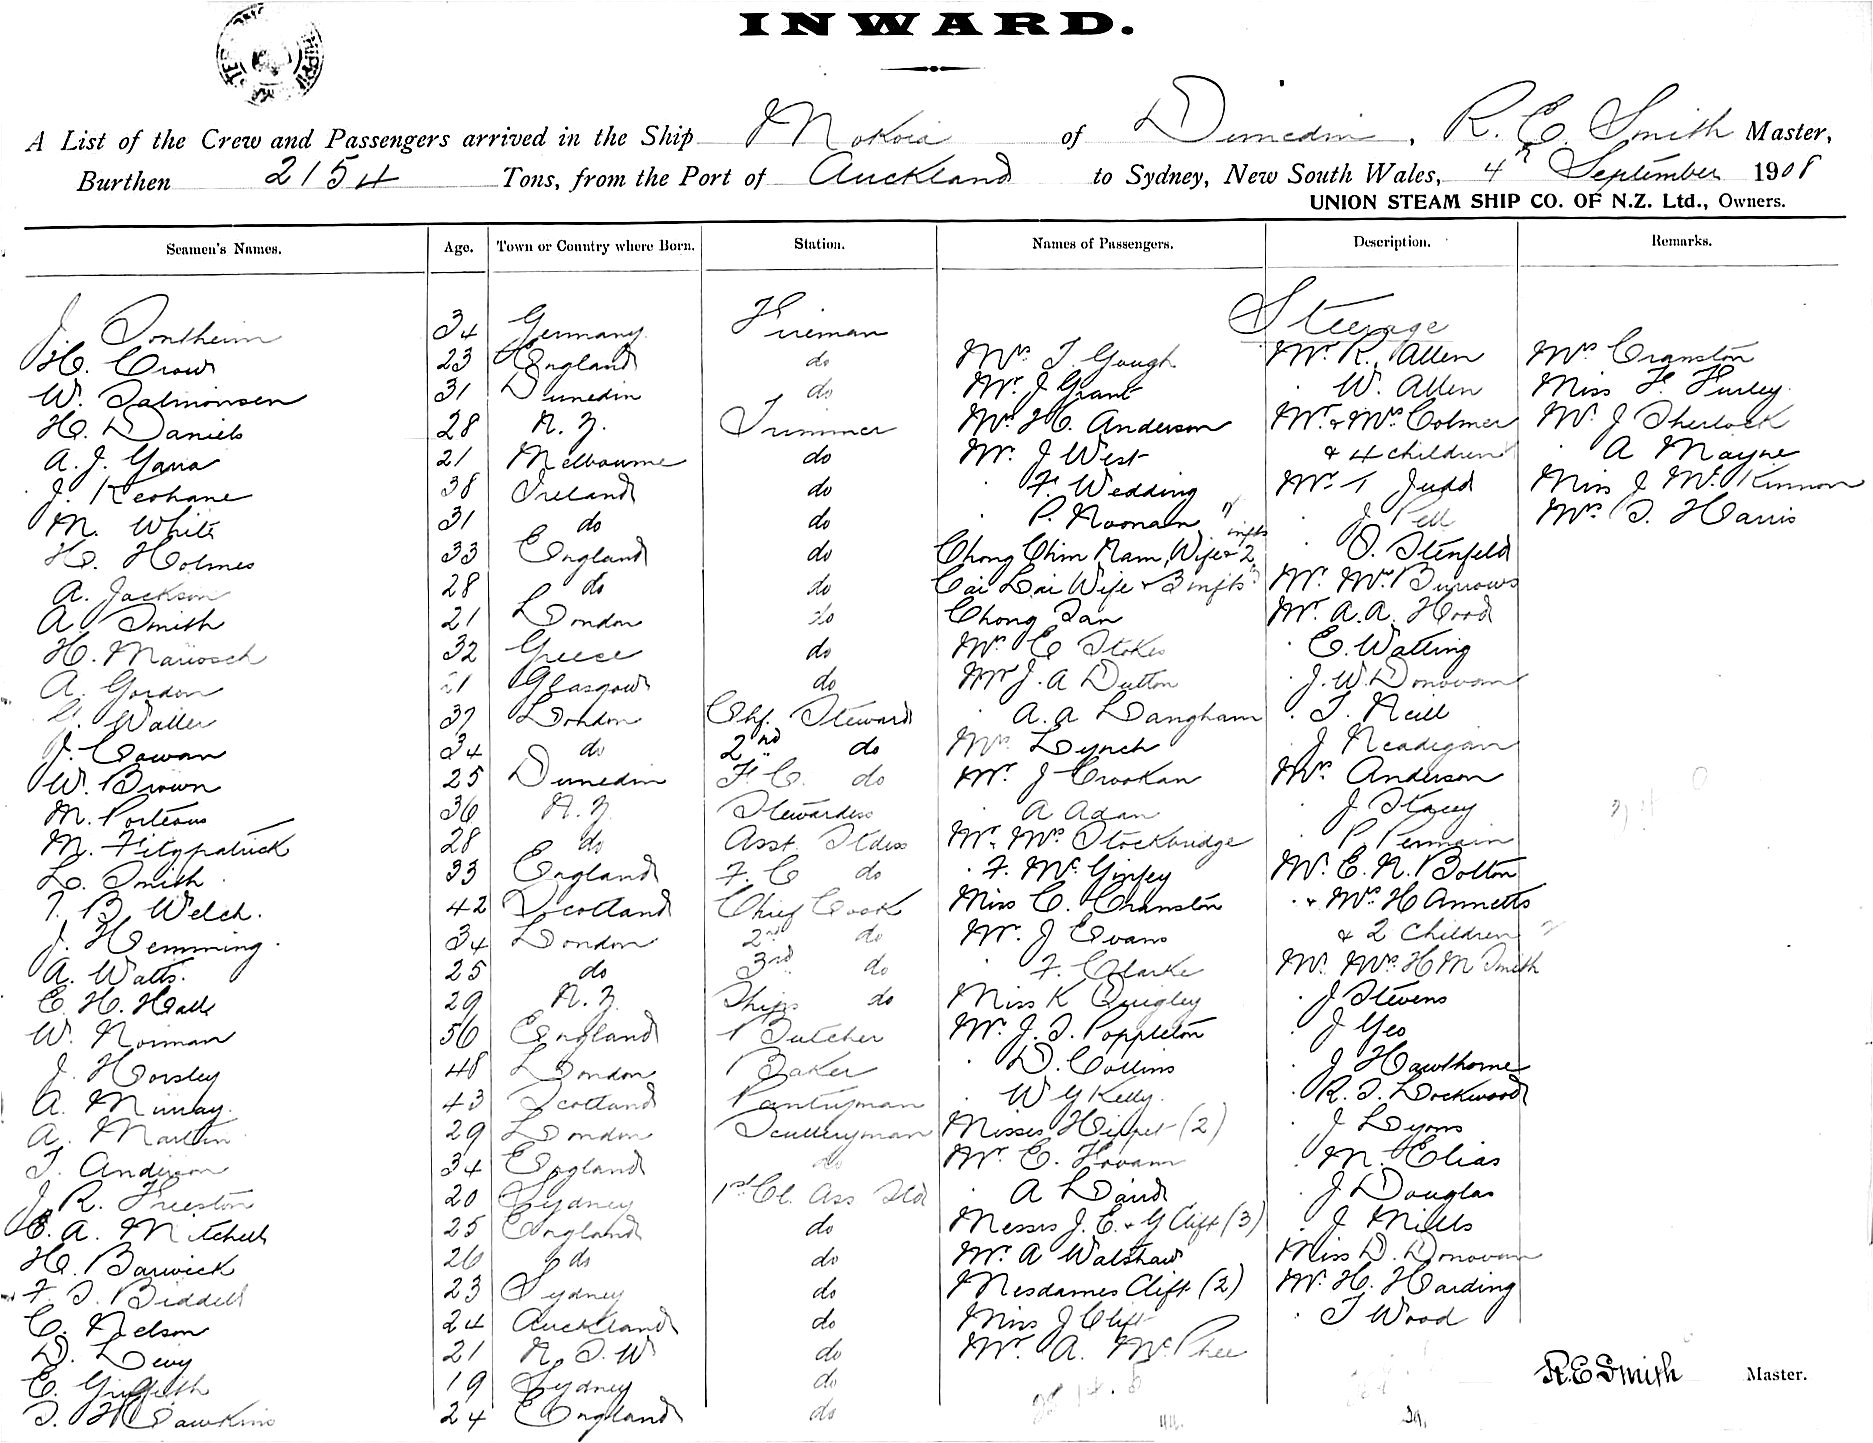 INWARD.
A List of the Crew and Passengers arrived in the Ship Mokoia of Dunedin, R. E. Smith Master,
Burthen 2154 Tons, from the Port of Auckland to Sydney, New South Wales, 4th September 1908
UNION STEAM SHIP CO. OF N.Z. Ltd., Owners.
Seamen's Names. Age. Town or Country where Born. Station. Names of Passengers. Description. Remarks.
Steerage
J. Sontheim 34 Germany Fireman
H. Crow 23 England do Mrs T. Gough Mr R. Allen Mrs Cranston
W. Salmonsen 31 Dunedin do Mr. J Grant W. Allen Miss F. Furley
H. Daniels 28 N. Z. Trimmer Mrs H. Anderson Mr. & Mrs Colmer Mr J Sherlock
A. J. Gava 21 Melbourne do Mr. J West & 4 children A Mayne
J. Keohane 38 Ireland do F. Wedding Mr T Judd Miss J McKinnon
M. White 31 do do P. Noonan J. Pell Mrs S. Harris
H. Holmes 33 England do Chong Chim Nam, Wife & 2 infts O. Stenfeld
A. Jackson 28 do do Cai Lai Wife & 3 infts Mr. Mrs Burrows
A. Smith 21 London do Chong Tan Mr A. A. Hood
H. Mariosch 32 Greece do Mr C Stokes E. Watling
A. Gordon 21 Glasgow do Mr J. A Dutton J. W. Donovan
Waller 37 London Chf. Steward A. A Langham T. Neill
J. Cowan 34 do 2nd do Mrs Lynch J Neadigan
W. Brown 25 Dunedin F. C. do Mr. J Crookan Mrs Anderson
M. Porteous 36 N. Z. Stewardess A Adan J Stacey
M. Fitzpatrick 28 do Asst. Stdess Mr. Mrs Stockbridge P. Permain
L. Smith 33 England F. C do F. McGinfey Mr. E. N. Bolton
T. B. Welch. 42 Scotland Chief Cook Miss C. Cranston & Mrs H Annetts
J. Hemming 34 London 2nd do Mr. J Evans & 2 Children
A. Watts. 25 do 3rd do F. Clarke Mr. Mrs H M Smith
E. H. Halls 29 N. Z. Ships do Miss K Quigley J Stevens
W. Norman 56 England Butcher Mr. J. S. Poppleton J Yeo
J. Horsley 48 London Baker D. Collins J Hawthorne
A. Murray. 43 Scotland Pantryman W G Kelly. R. S. Lockwood
A. Martin 29 London Sculleryman Misses Hippet (2) J Lyons
T. Anderson 34 England do Mr. E. Hovam M. Elias
J. R. Freeston 20 Sydney 1st Cl. Ass Std A Laird J Douglas
E. A. Mitchell 25 England do Messrs J. E. & G Clift (3) J Mills
H. Barwick 26 do do Mr. A Walshaw Miss D. Donovan
F. S. Biddell 23 Sydney do Mesdames Clift (2) Mr. H. Harding
C. Nelson 24 Auckland do Miss J Clift T Wood
D. Levy 21 N. S. W do Mr. A. McPhee
E. Griffith 19 Sydney do
S. H Hawkins 24 England do
R. E Smith Master.